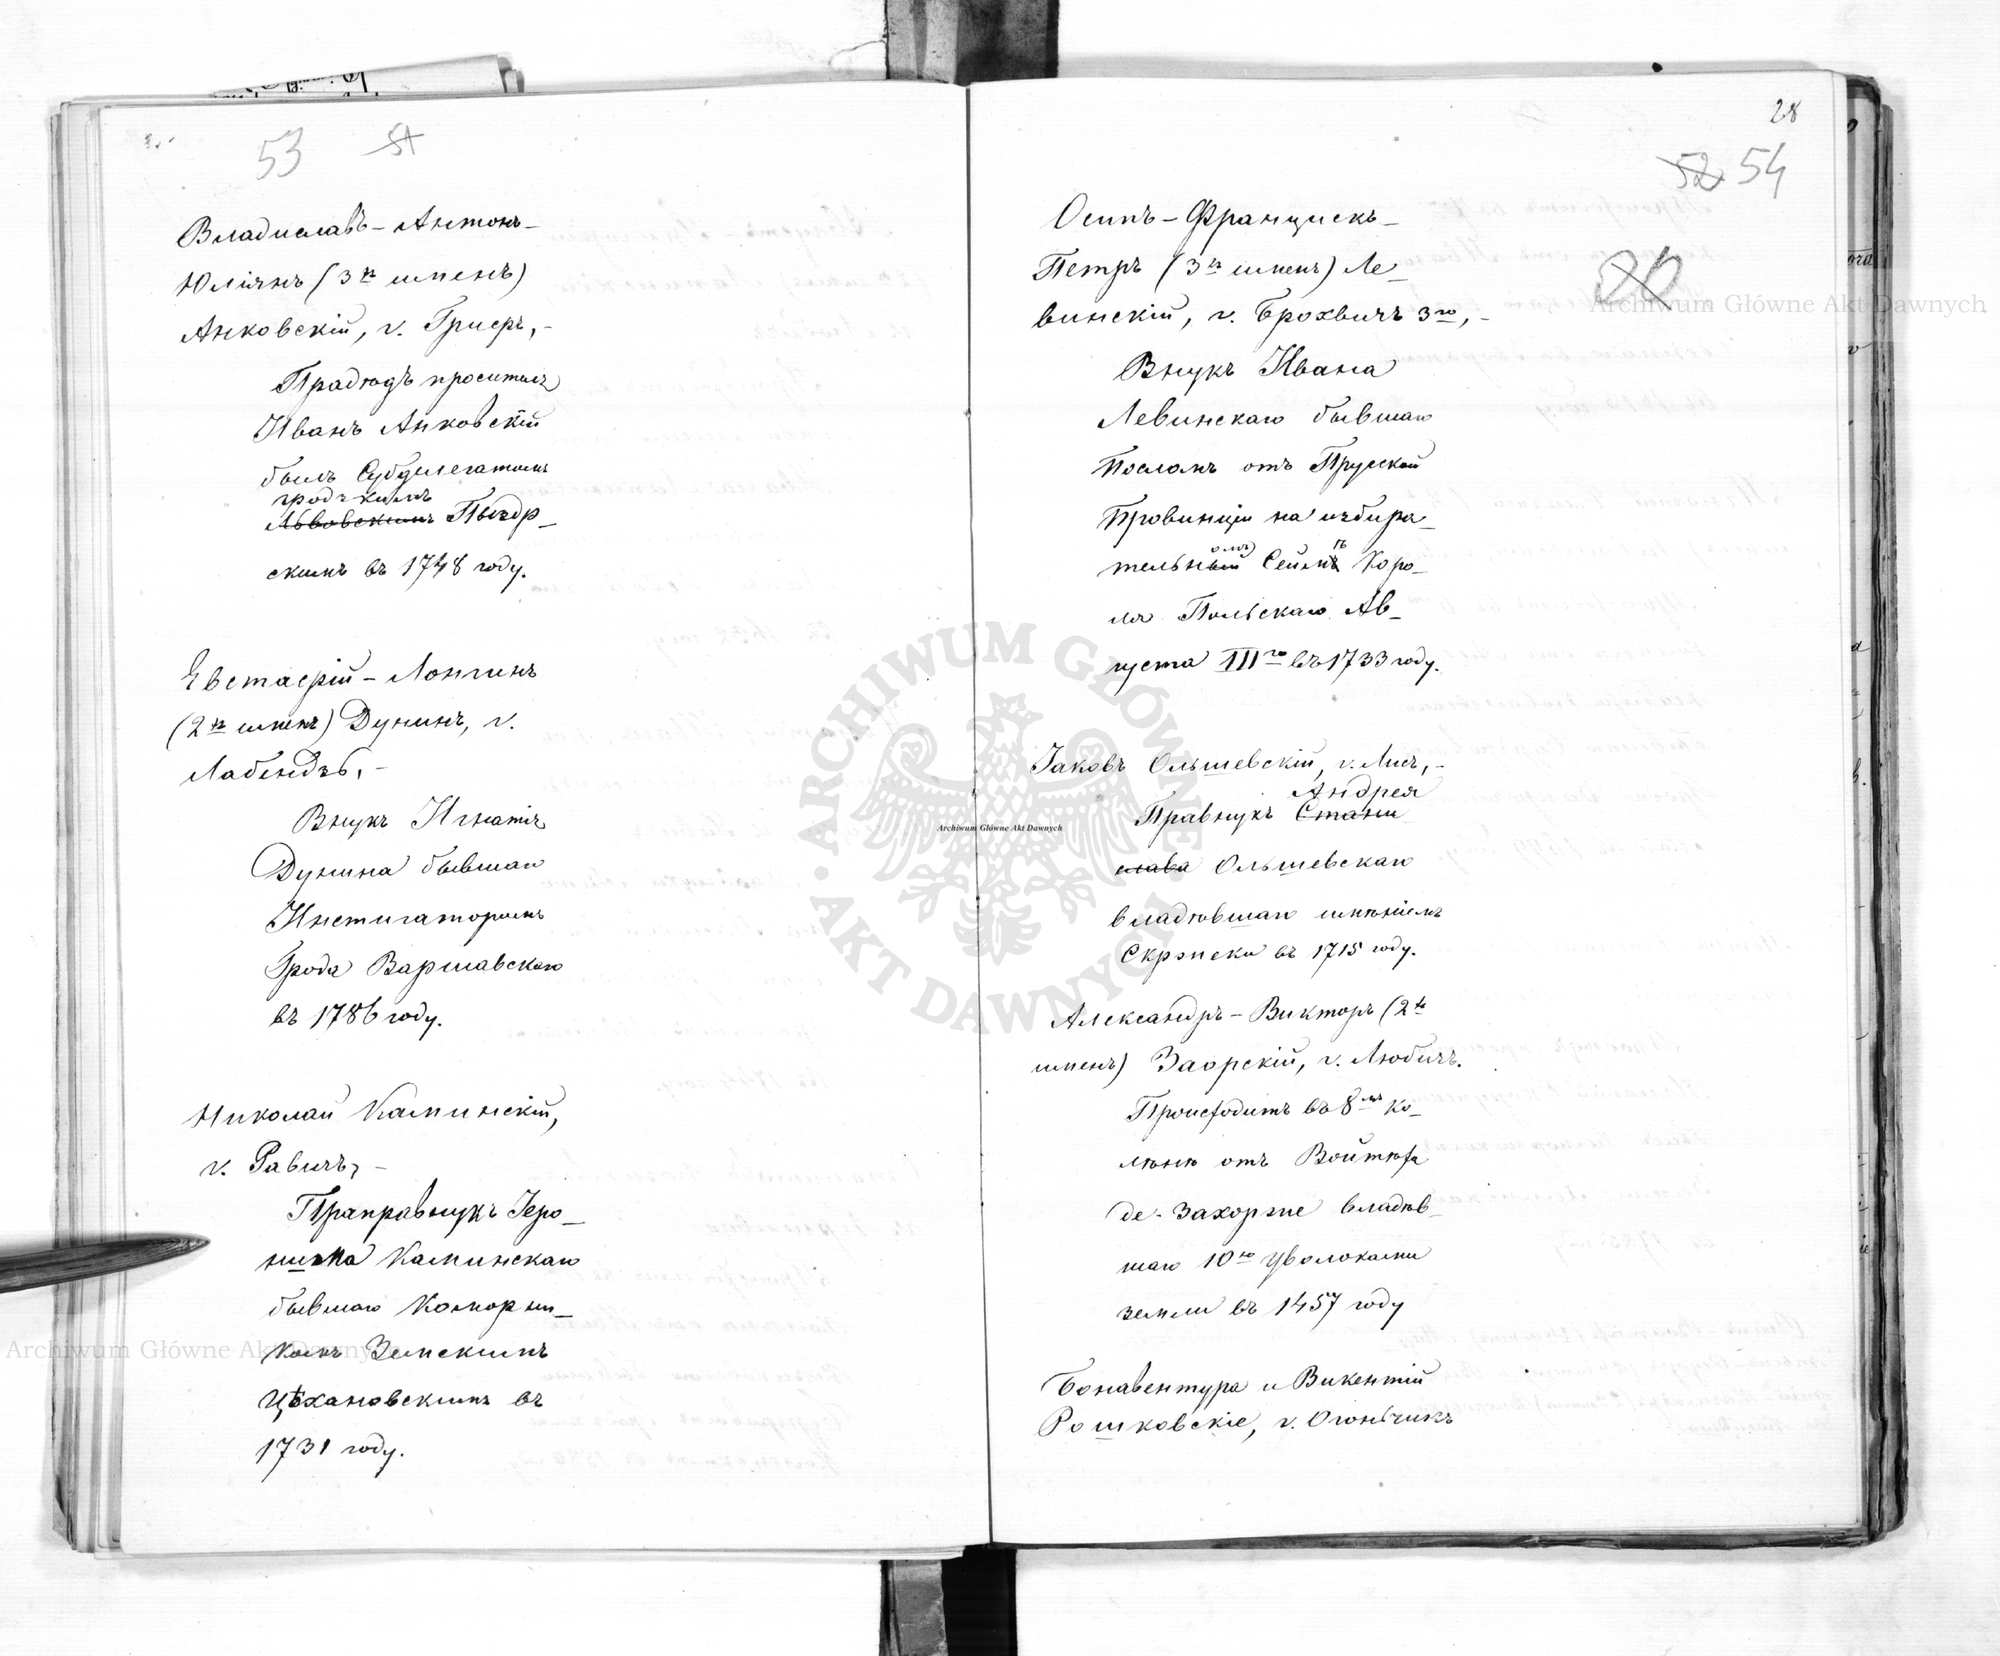 53 51
Владиславъ-Антонъ-
Юліянъ (3хъ именъ)
Анковскій, г. Гриеръ,-
Прадѣдъ просителя
Иванъ Анковскій
былъ Субделегатомъ
гродскимъ
Львовскимъ Пыздр-
скимъ въ 1748 году.
Евстафій-Лонгинъ
(2хъ именъ) Дунинъ, г.
Лабендзъ,-
Внукъ Игнатія
Дунина бывшаго
Инстигаторомъ
Грода Варшавскаго
въ 1786 году.
Николай Каминскій,
г. Равичъ,-
Праправнукъ Іеро-
нима Каминскаго
бывшаго Коморни-
комъ Земскимъ
Цѣхановскимъ въ
1731 году.
28
52 54
Осипъ-Францискъ-
Петръ (3хъ именъ) Ле-
винскій, г. Брохвичъ 3го,-
Внукъ Ивана
Левинскаго бывшаго
Посломъ отъ Прусской
Провинціи на избира-
омъ) ѣ
тельный Сеймъ Коро-
ля Польскаго Ав-
густа III го въ 1733 году.
Іаковъ Ольшевскій, г. Лисъ,-
Андрея
Правнукъ Стани
слава Ольшевскаго
владѣвшаго имѣніемъ
Скропеки въ 1715 году.
Александръ-Викторъ (2хъ
именъ) Заорскій, г. Любичъ.
Происходитъ въ 8мъ ко-
лѣнѣ отъ Войтѣха
де-Захорже владѣв-
шаго 10ю Уволоками
земли въ 1457 году
Бонавентура и Викентій
Рошковскіе, г. Огоньчикъ
Archiwum Główne Akt Dawnych
Archiwum Główne Akt Dawnych
Archiwum Główne Akt Dawnych
ARCHIWUM GŁÓWNE · AKT DAWNYCH ·